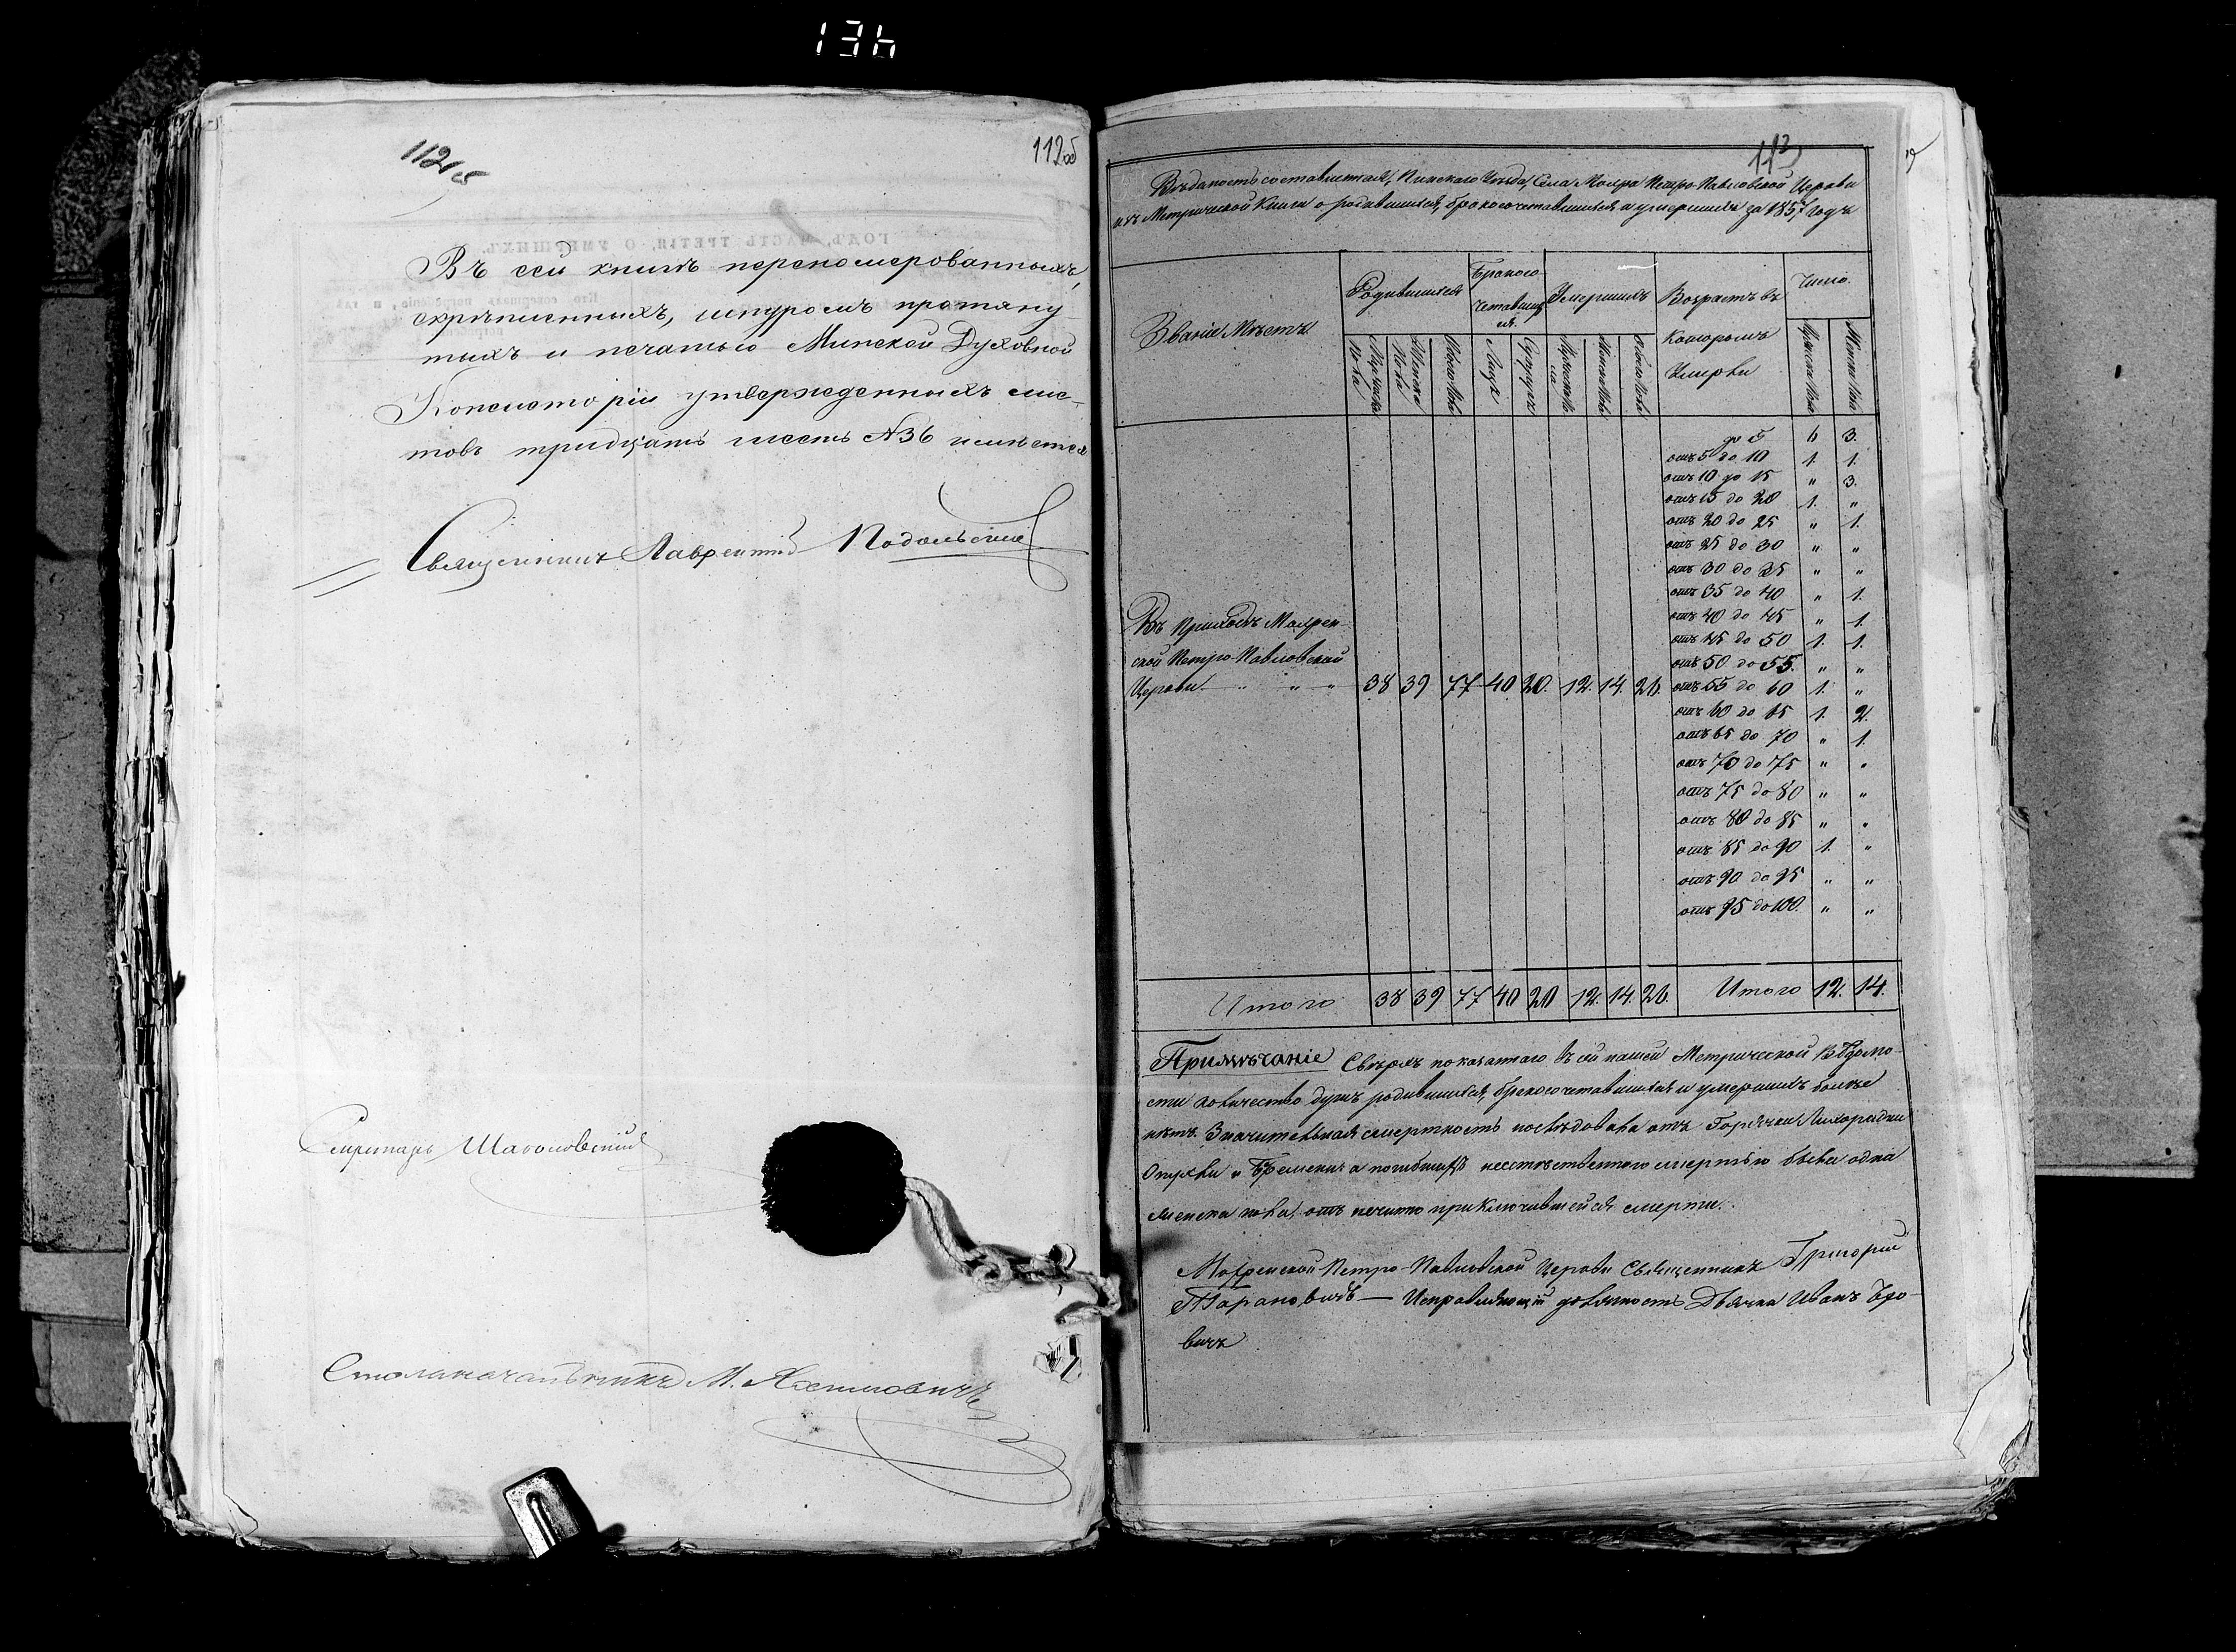 136
112об
112об
Въ сей книгѣ переномерованныхъ,
скрѣпленныхъ, шнуромъ протяну
тыхъ и печатью Минской Духовной
Консисторіи утвержденныхъ лис-
товъ тридцать шесть №36 имѣется
Священникъ Лаврентій Подольскій
Секретарь
Столоначальникъ М. Яхимовичъ
113
Вѣдомость составленная, Пинскаго Уѣзда, Села Моляра Петро-Павловской Церкви
изъ Метрической Книги о родившихся, бракосочетавшихся и умершихъ за 1857 годъ
Званіе Мѣстъ.
Родившихся
Бракосо-
четавших
ся.
Умершихъ
Возрастъ въ
Которомъ
Умерли
Число.
Мужеска
Пола
Женска
Пола
Обоего Пола
Лицъ
Супруг
Мужеска
Женска Пола
Обоего Пола
Мужеска Пола
Женска Пола
до 5 6 3.
отъ 5 до 10 1. 1.
отъ 10 до 15 " 3.
отъ 15 до 20 1. "
отъ 20 до 25 " 1.
отъ 25 до 30 " "
отъ 30 до 35 " "
отъ 35 до 40 " 1.
отъ 40 до 45 " 1.
отъ 45 до 50 1. 1.
отъ 50 до 55. " "
отъ 55 до 60 1. "
отъ 60 до 65 1. 2.
отъ 65 до 70 " 1.
отъ 70 до 75 " "
отъ 75 до 80 " "
отъ 80 до 85 " "
отъ 85 до 90 1. "
отъ 90 до 95 " "
отъ 95 до 100. " "
Въ Приходѣ Молрен-
ской Петро-Павловской
Церкви " " " 38 39 77 40 20. 12. 14. 26.
Итого 38 39 77 40 20 12. 14. 26. Итого 12. 14.
Примѣчаніе Сверхъ показаннаго въ сей нашей Метрической Вѣдомо-
сти количество душъ родившихся, бракосочетавшихся и умершихъ болѣе
нѣтъ. Значительная смертность послѣдовала отъ Горячки Лихорадки
Опухли и а погибшихъ неестественною смертью была одна
женска пола, отъ приключившейся смерти.
Петро-Павловской Церкви Священникъ Григорій
Тарановичъ — Исправляющій должность Дьячка Иванъ Бро-
вичъ